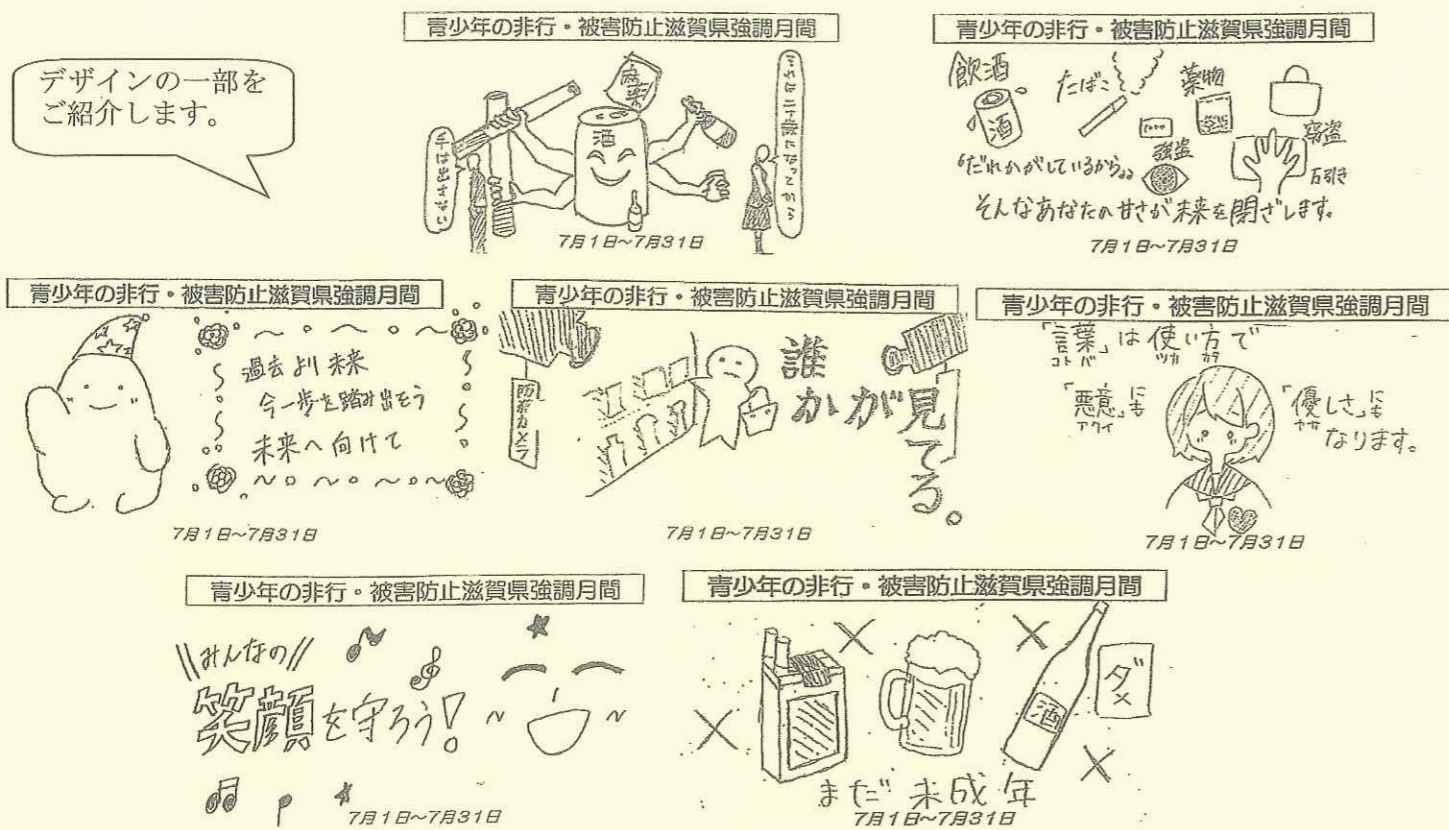 デザインの一部を
ご紹介します。
青少年の非行・被害防止滋賀県強調月間
麻薬
酒
手は出さない
7月1日~7月31日
青少年の非行・被害防止滋賀県強調月間
飲酒
たばこ
薬物
酒
強盗
窃盗
万引き
“だれかがしているから„
そんなあなたの甘さが未来を閉ざします。
7月1日~7月31日
青少年の非行・被害防止滋賀県強調月間
過去より未来
今一歩を踏み出そう
未来へ向けて
7月1日~7月31日
青少年の非行・被害防止滋賀県強調月間
防犯カメラ
誰
かが見
てる。
7月1日~7月31日
青少年の非行・被害防止滋賀県強調月間
「言葉」は使い方で
コトバ ツカ カタ
「悪意」にも
アクイ
「優しさ」にも
ヤサ
なります。
7月1日~7月31日
青少年の非行・被害防止滋賀県強調月間
みんなの
笑顔を守ろう!
7月1日~7月31日
青少年の非行・被害防止滋賀県強調月間
酒
ダメ
まだ未成年
7月1日~7月31日